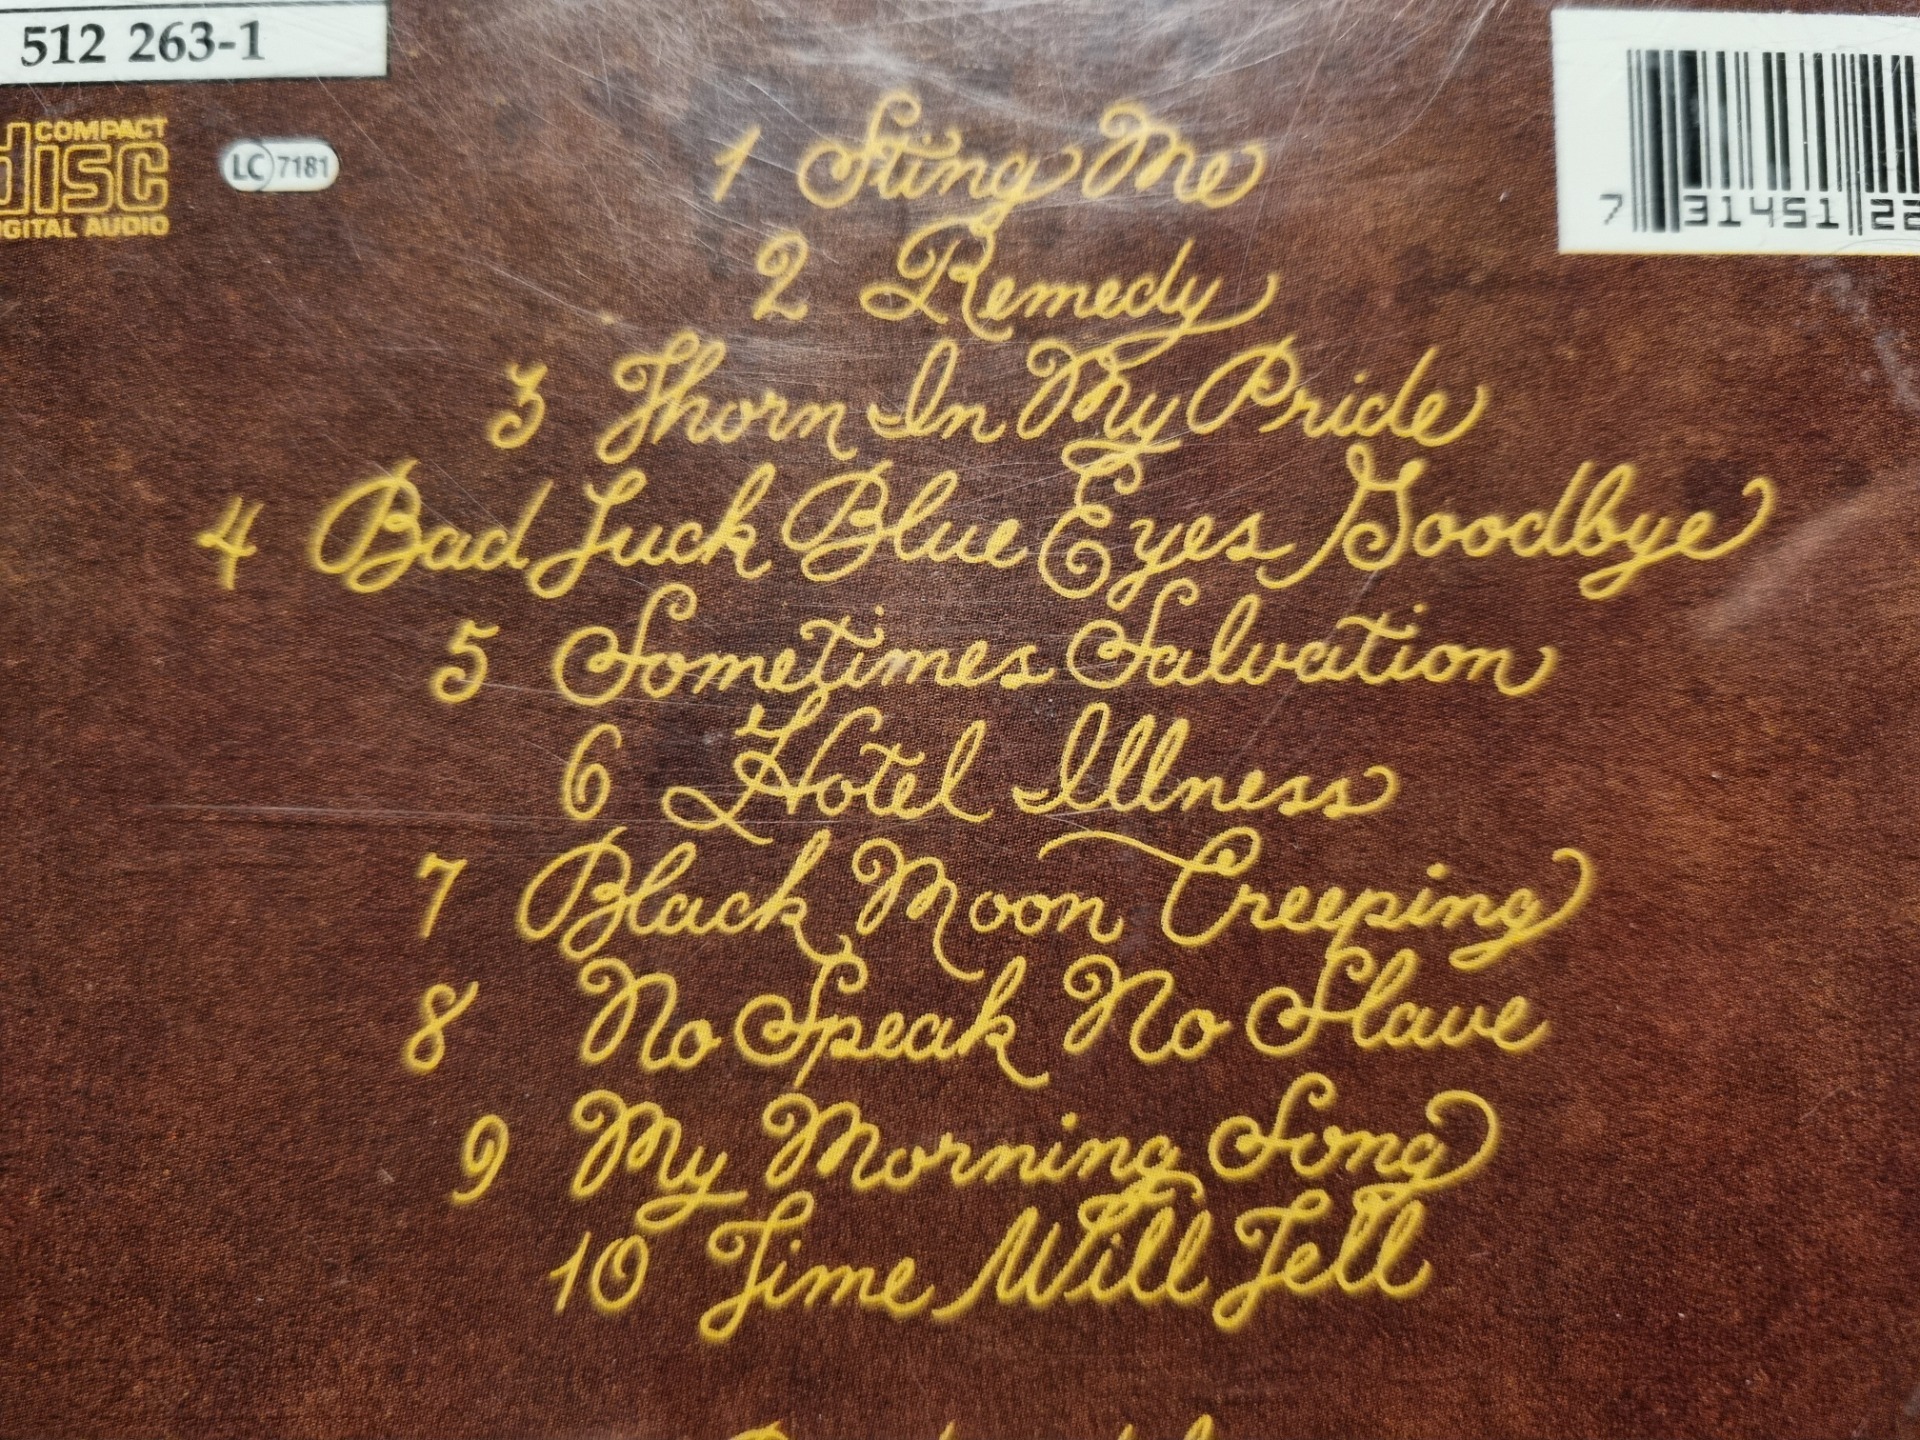 512 263-1
COMPACT
disc
DIGITAL AUDIO
LC 7181
7 31451 22
1 Sting Me
2 Remedy
3 Thorn In My Pride
4 Bad Luck Blue Eyes Goodbye
5 Sometimes Salvation
6 Hotel Illness
7 Black Moon Creeping
8 No Speak No Slave
9 My Morning Song
10 Time Will Tell